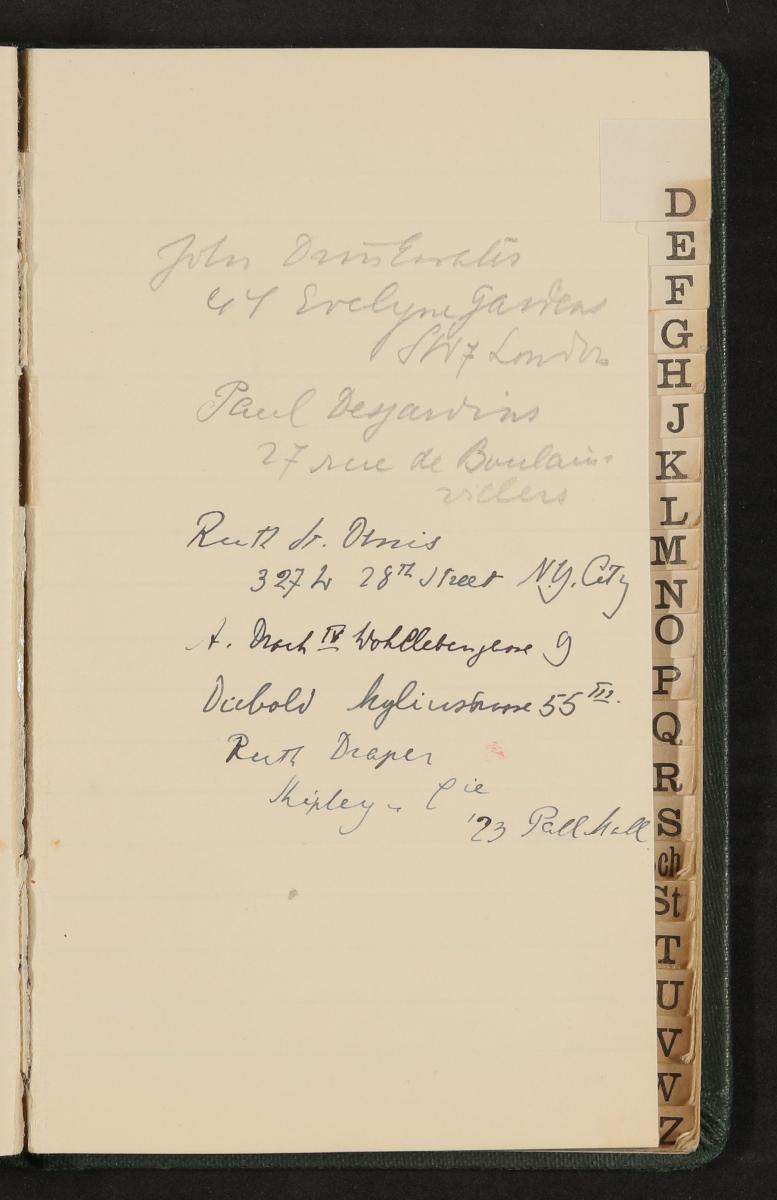 John Drinkwater
Evelyn Gardens
SW7 London
Paul Desjardins
27 rue de Boulain-
villers
Ruth St. Denis
327 W 28th Street N.Y. City
A. Drach IV Wohllebengasse 9
Diebold Myliusstrasse 55 III.
Ruth Draper
Shipley & Cie
123 Pall Mall
D
E
F
G
H
J
K
L
M
N
O
P
Q
R
S
Sch
St
T
U
V
W
Z